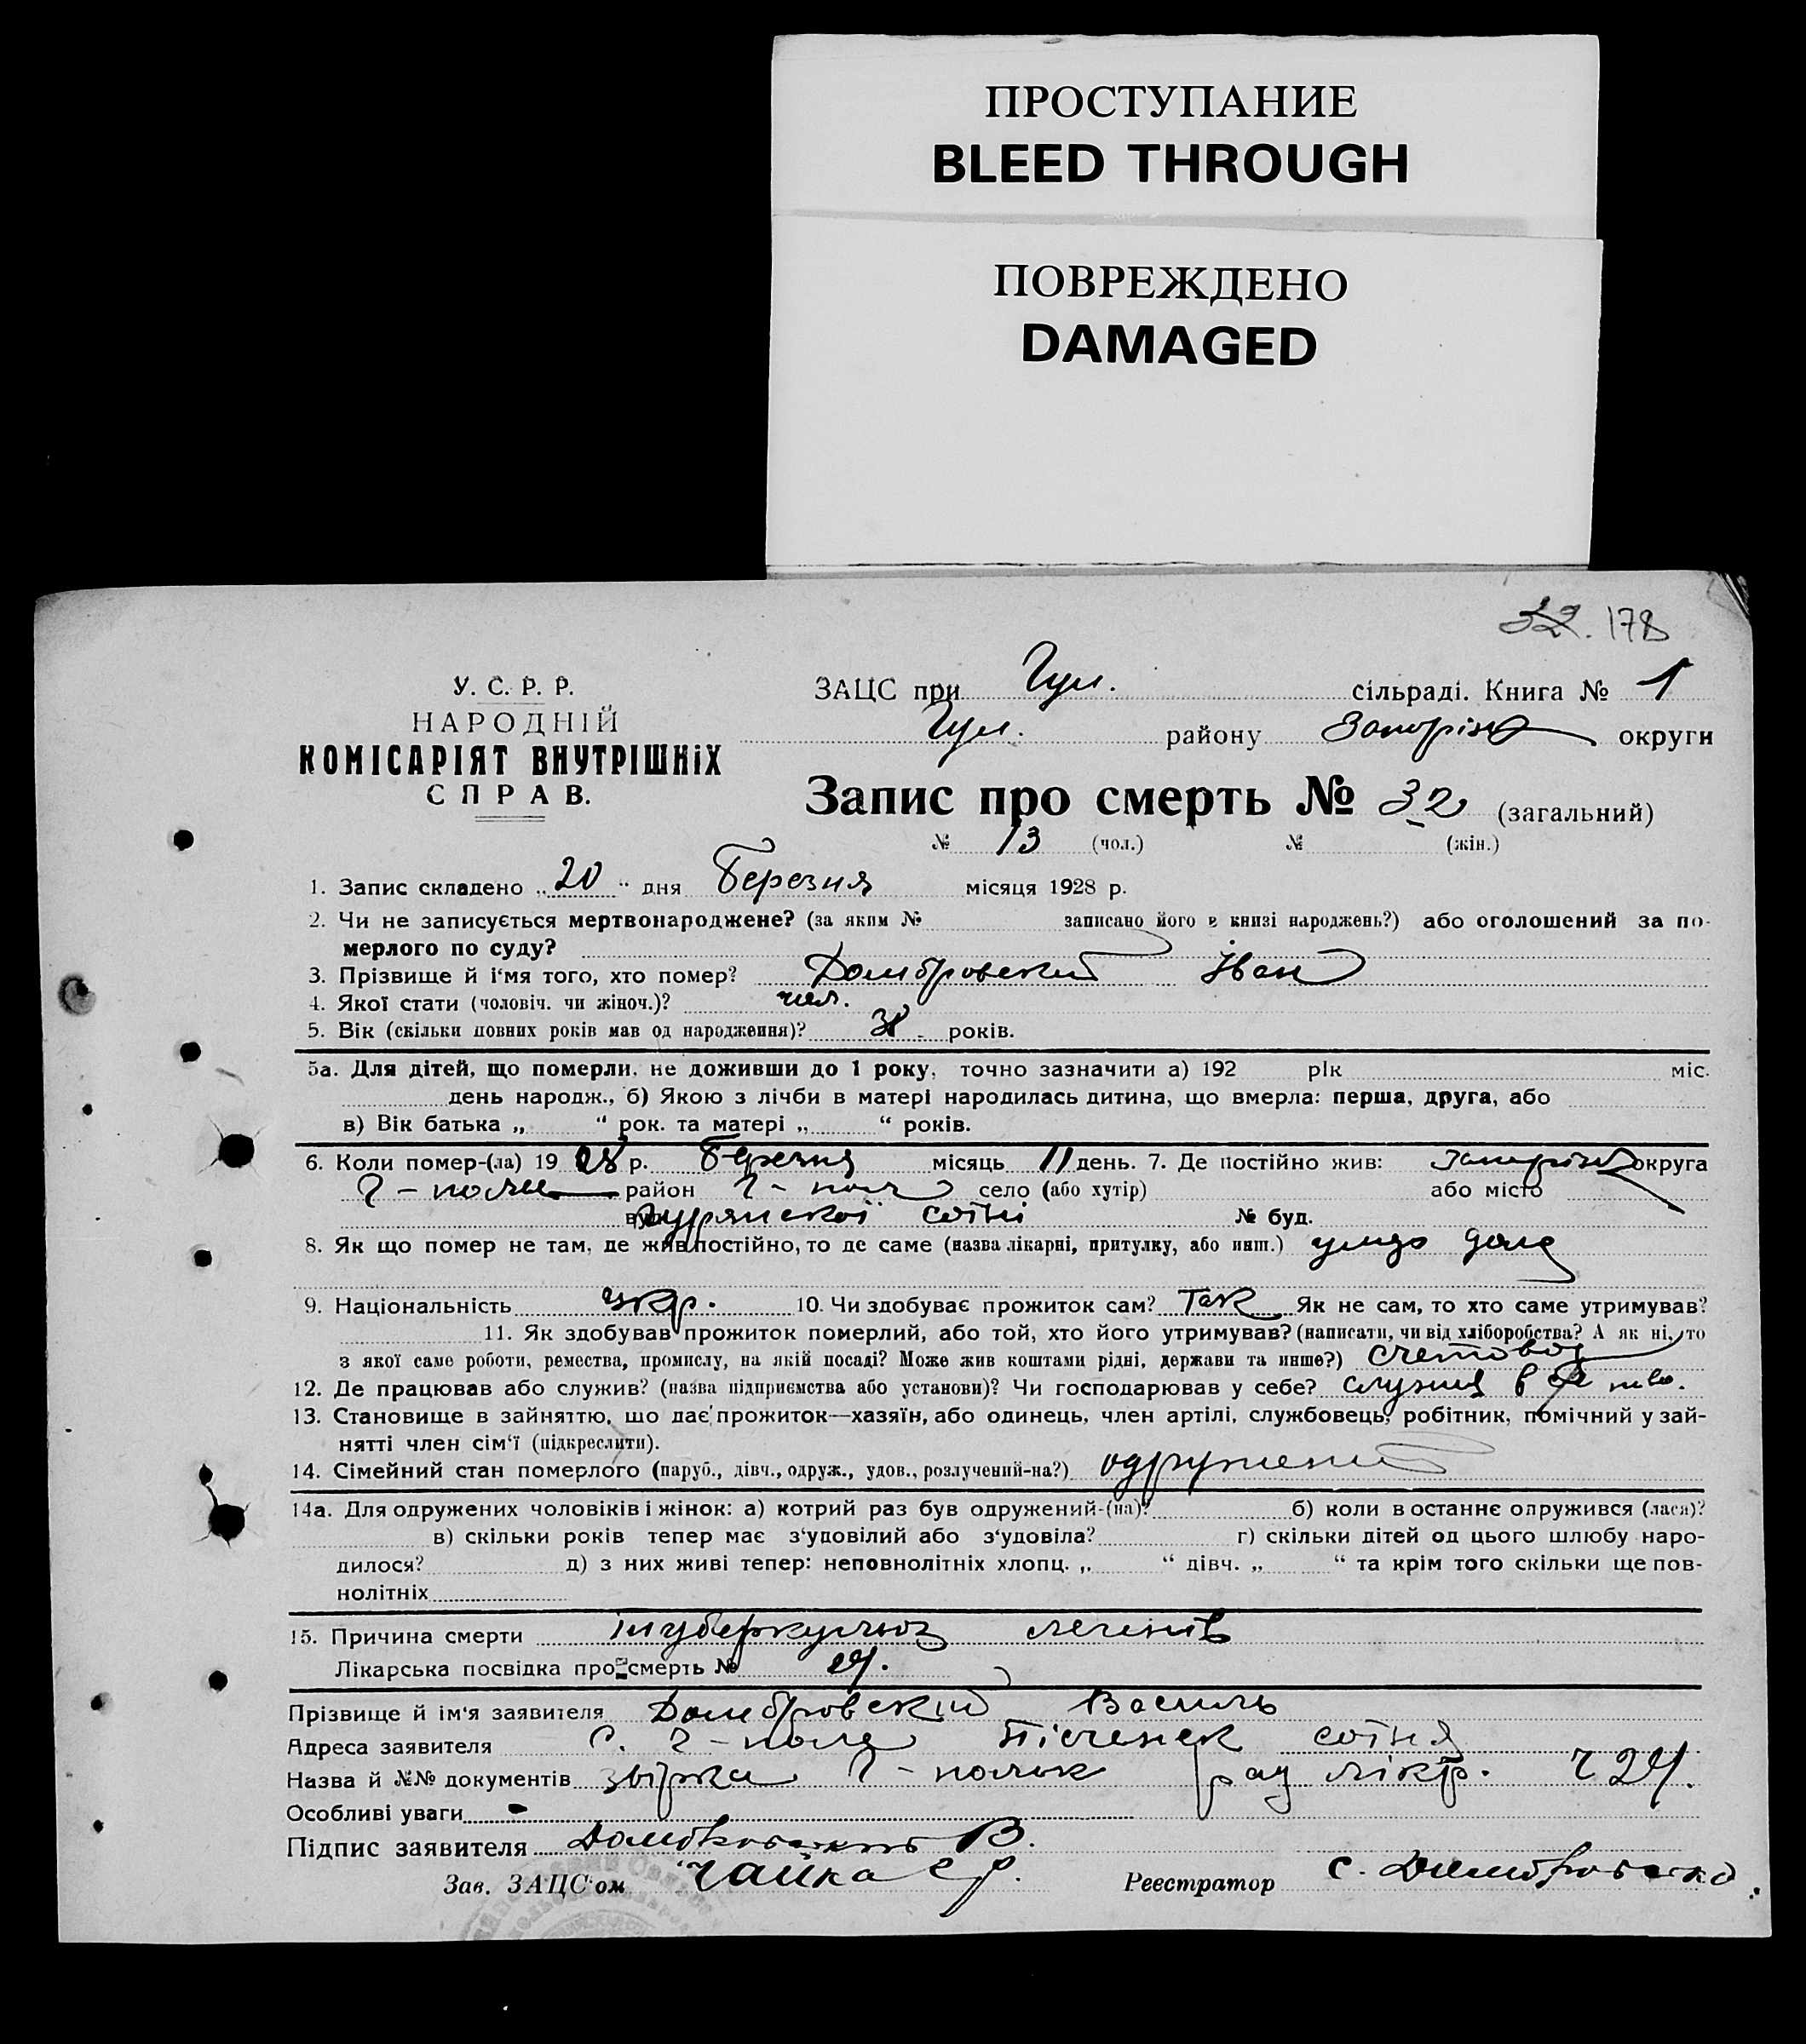 ПРОСТУПАНИЕ
BLEED THROUGH
ПОВРЕЖДЕНО
DAMAGED
32. 178
У. С. Р. Р.
НАРОДНІЙ
КОМІСАРІЯТ ВНУТРІШНІХ
СПРАВ.
ЗАЦС при Гул. сільраді. Книга № 1
Гул. району Запоріж округи
Запис про смерть № 32 (загальний)
№ 13 (чол.) № (жін.)
1. Запис складено „20“ дня Березня місяця 1928 р.
2. Чи не записується мертвонароджене? (за яким № записано його в книзі народжень?) або оголошений за по-
мерлого по суду?
3. Прізвище й і‘мя того, хто помер? Домбровский Іван
4. Якої стати (чоловіч. чи жіноч.)? чол.
5. Вік (скільки повних років мав од народження)? років.
5а. Для дітей, що померли, не доживши до 1 року, точно зазначити а) 192 рік міс.
день народж., б) Якою з лічби в матері народилась дитина, що вмерла: перша, друга, або
в) Вік батька „ “ рок. та матері „ “ років.
6. Коли помер-(ла) 1928 р. Березня місяць 11 день. 7. Де постійно жив: Запоріж округа
Г-поле район Г-поле село (або хутір) або місто
вул. сотні № буд.
8. Як що помер не там, де жив постійно, то де саме (назва лікарні, притулку, або инш.) дома
9. Національність Укр. 10. Чи здобуває прожиток сам? Так Як не сам, то хто саме утримував?
11. Як здобував прожиток померлий, або той, хто його утримував? (написати, чи від хліборобства? А як ні, то
з якої саме роботи, ремества, промислу, на якій посаді? Може жив коштами рідні, держави та инше?) счетовод
12. Де працював або служив? (назва підприємства або установи)? Чи господарював у себе? служил в
13. Становище в зайняттю, що дає прожиток—хазяїн, або одинець, член артілі, службовець, робітник, помічний у зай-
нятті член сім‘ї (підкреслити).
14. Сімейний стан померлого (паруб., дівч., одруж., удов., розлучений-на?) одружений
14а. Для одружених чоловіків і жінок: а) котрий раз був одружений-(на)? б) коли востаннє одружився (лася)?
в) скільки років тепер має з‘удовілий або з‘удовіла? г) скільки дітей од цього шлюбу наро-
дилося? д) з них живі тепер: неповнолітніх хлопц. „ “ дівч. „ “ та крім того скільки ще пов-
нолітніх
15. Причина смерти туберкульоз легенів
Лікарська посвідка про смерть № 24.
Прізвище й ім‘я заявителя Домбровский Василь
Адреса заявителя С. Г-поле сотня
Назва й №№ документів Г-польк рай лікр. 24.
Особливі уваги -
Підпис заявителя Домбровский В.
Зав. ЗАЦС‘ом Чайка Реєстратор С. Домбровська